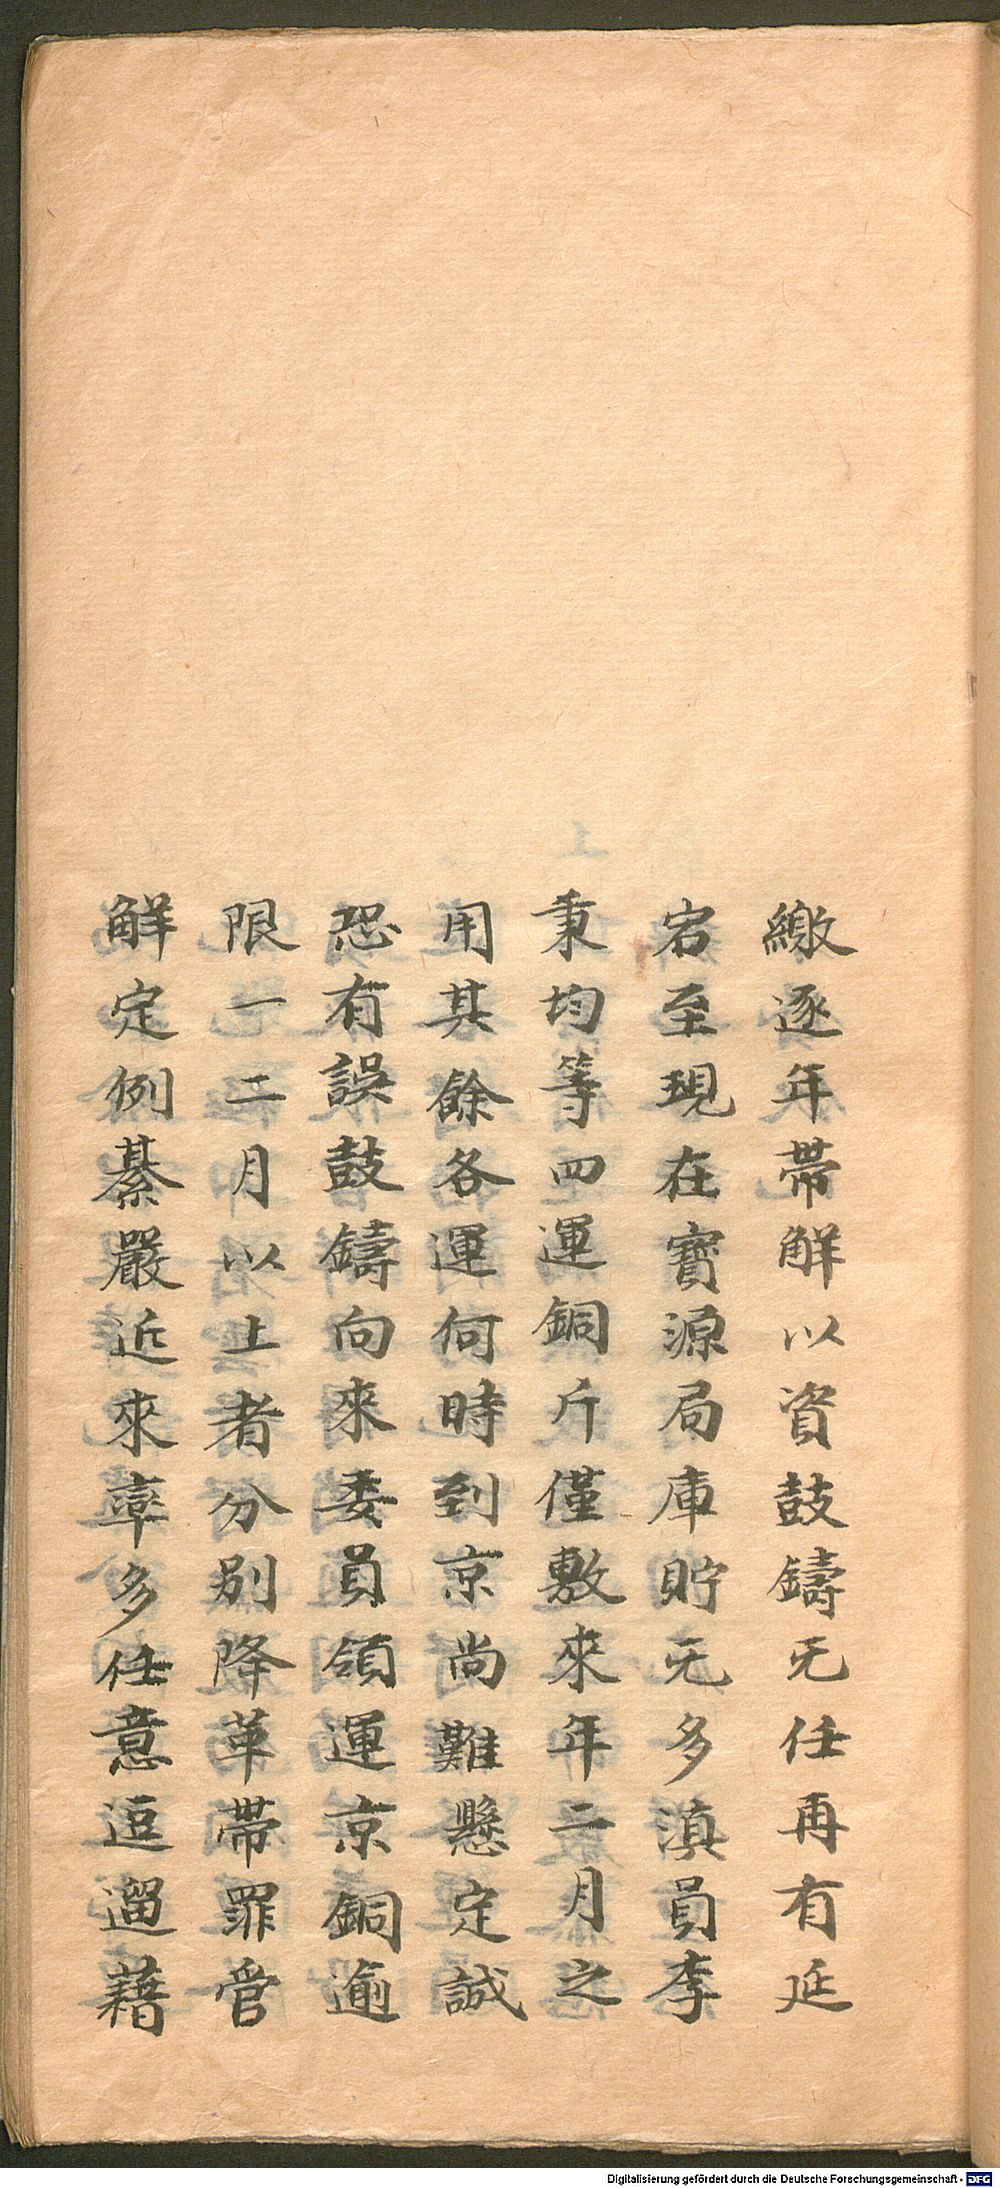 繳逐年帶解以資鼓鑄无任再有延
宕至現在寳源局庫貯无多滇員李
秉均等四運銅斤僅敷來年二月之
用其餘各運何時到京尚難懸定誠
恐有誤鼓鑄向來委員領運京銅逾
限一二月以上者分别降革帶罪管
觧定例綦嚴近來率多任意逗遛藉
Digitalisierung gefördert durch die Deutsche Forschungsgemeinschaft - DFG